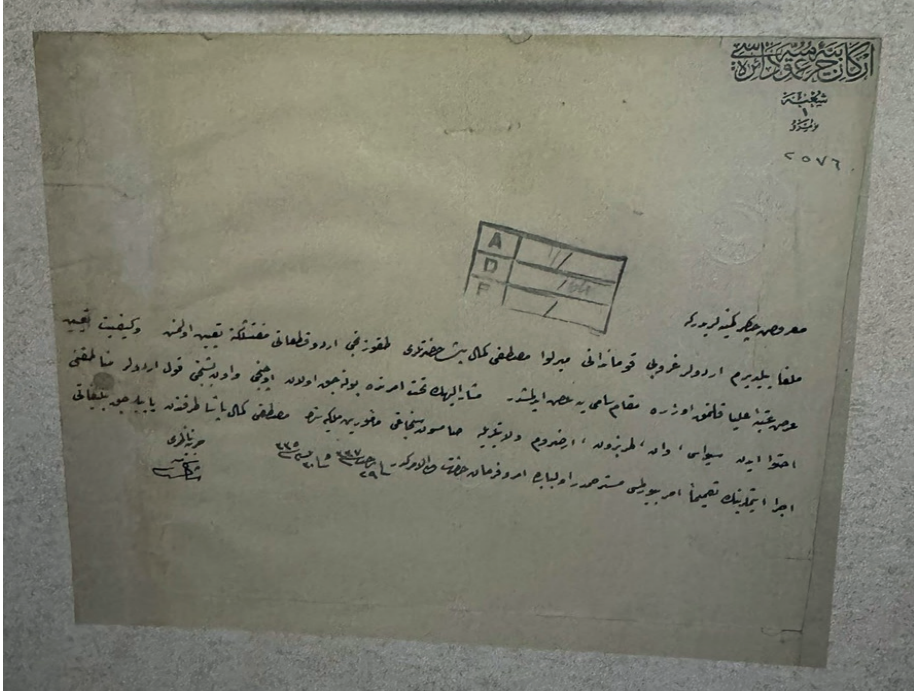 اركان حربيۀ عموميه دائره‌سى
شعبه
١
نومرو
٢٥٧٦
A
D
F
معروض چاكر كمينه‌لريدركه
ملغا ييلديرم اردولر غروپى قوماندانى ميرلوا مصطفى كمال پاشا حضرتلرى طقوزنجى اردو قطعاتى مفتشلكنه تعيين اولنمش وكيفيت تعيين
عرض عتبۀ عليا قلنمق اوزره مقام سامى‌يه عرض ايدلمشدر مشار اليهك تحت امرنده بولنه‌جق اولان اوچنجى واون بشنجى قول اردولر مناطقنى
احتوا ايدن سيواس، وان، طربزون، ارضروم ولايتلريله صامسون سنجاغى مأمورين ملكيه‌سنه مصطفى كمال پاشا طرفندن ياپيله‌جق تبليغاتى
اجرا ايتمه‌لرينك تعميماً امر بيورلمسى مسترحمدر اولبابده امر وفرمان حضرت من له الامركدر ٢٩ رجب ٣٣٧ و ٣٠ نيسان ٣٣٥
حربيه ناظرى
شاكر